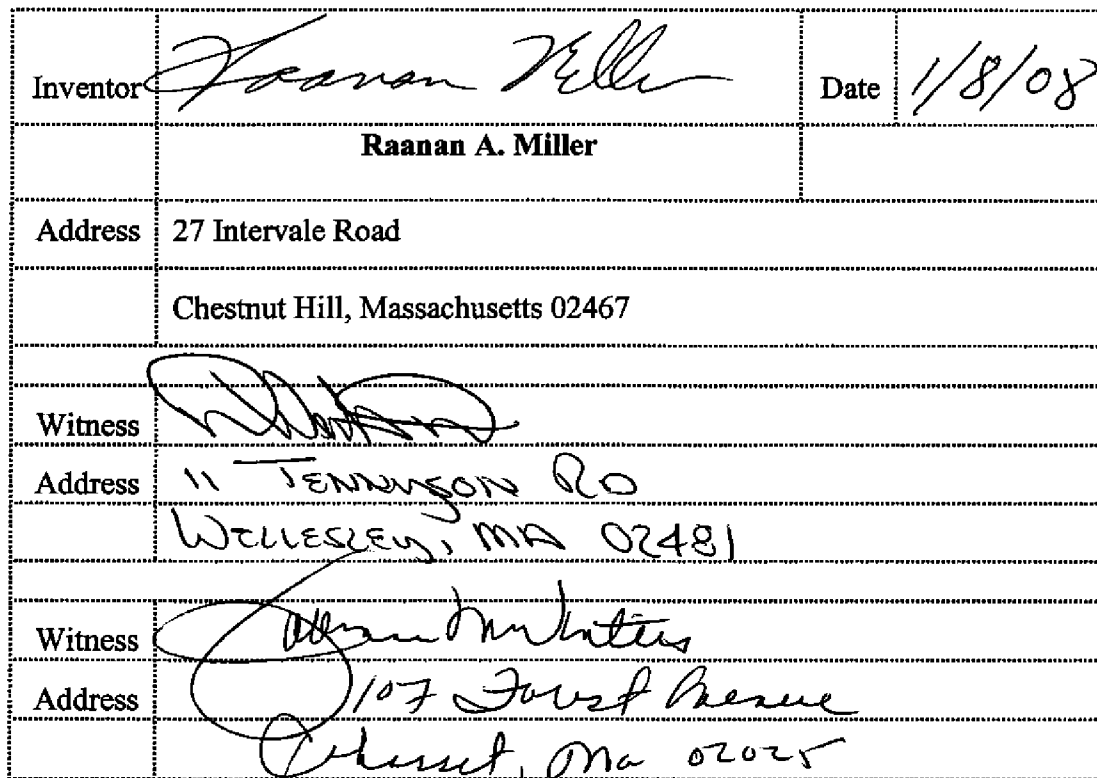 Inventor Raanan Miller Date 1/8/08
Raanan A. Miller
Address 27 Intervale Road
Chestnut Hill, Massachusetts 02467
Witness
Address 11 TENNYSON RD
WELLESLEY, MA 02481
Witness
Address 107 Forest Avenue
Cohasset, Ma 02025